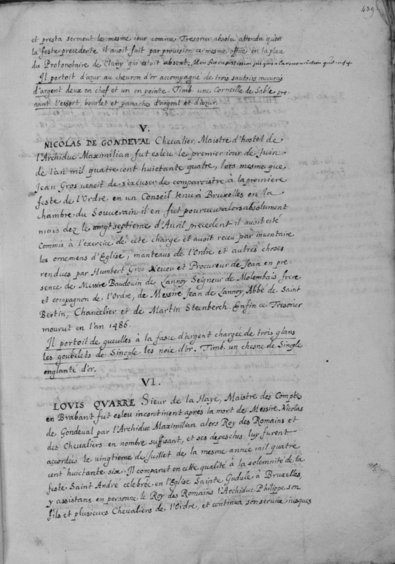 439
et presta serment le mesme jour comme Tresorier absolu attendu qu'en
la feste precedente il avoit fait par provision ce mesme office en la place
du Protonotaire de Cluny qui estoit absent.
Il portoit d'azur au chevron d'or accompagné de trois
d'argent deux en chef et un en pointe. Timb. une Corneille de Sable pre-
nant l'essort, bourlet et panaches d'argent et d'azur.
V.
NICOLAS DE GONDEVAL Chevalier, Maistre d'hostel de
l'Archiduc Maximilian fut esleu le premier jour de Juin
de l'an mil quatre cent huictante quatre, lors mesme que
Jean Gros venoit de s'excuser de comparoistre à la premiere
feste de l'Ordre, en un Conseil tenu à Bruxelles en la
Chambre du Souverain il en fut pourveu absolument
mais dez le vingt septieme d'Avril precedent il avoit esté
commis à l'exercice de cette charge et avoit receu par inventaire
les ornemens d'Eglise, manteaux de l'Ordre et autres choses
rendues par Humbert Gros Neveu et Procureur de Jean en pre-
sence de Messire Baudouin de Lannoy Seigneur de Molembais frere
et compagnon de l'Ordre, de Messire Jean de Lannoy Abbé de Saint
Bertin, Chancelier et de Martin Steenberch. Enfin ce Tresorier
mourut en l'an 1486.
Il portoit de gueulles à la fasce d'argent chargée de trois glans
les goubelets de Sinople les noix d'or. Timb. un chesne de Sinople
englanté d'or.
VI.
LOUIS QVARRE Sieur de la Haye, Maistre des Comptes
en Brabant fut esleu incontinent apres la mort de Messire Nicolas
de Gondeval par l'Archiduc Maximilian alors Roy des Romains et
des Chevaliers en nombre suffisant, et ses depesches luy furent
accordées le vingtieme de Juillet de la mesme année mil quatre
cent huictante six. Il comparut en cette qualité à la solemnité de la
feste Saint André celebrée en l'Eglise Sainte Gudule à Bruxelles,
y assistans en personne le Roy des Romains l'Archiduc Philippe son
fils et plusieurs Chevaliers de l'Ordre, et continua son service jusques